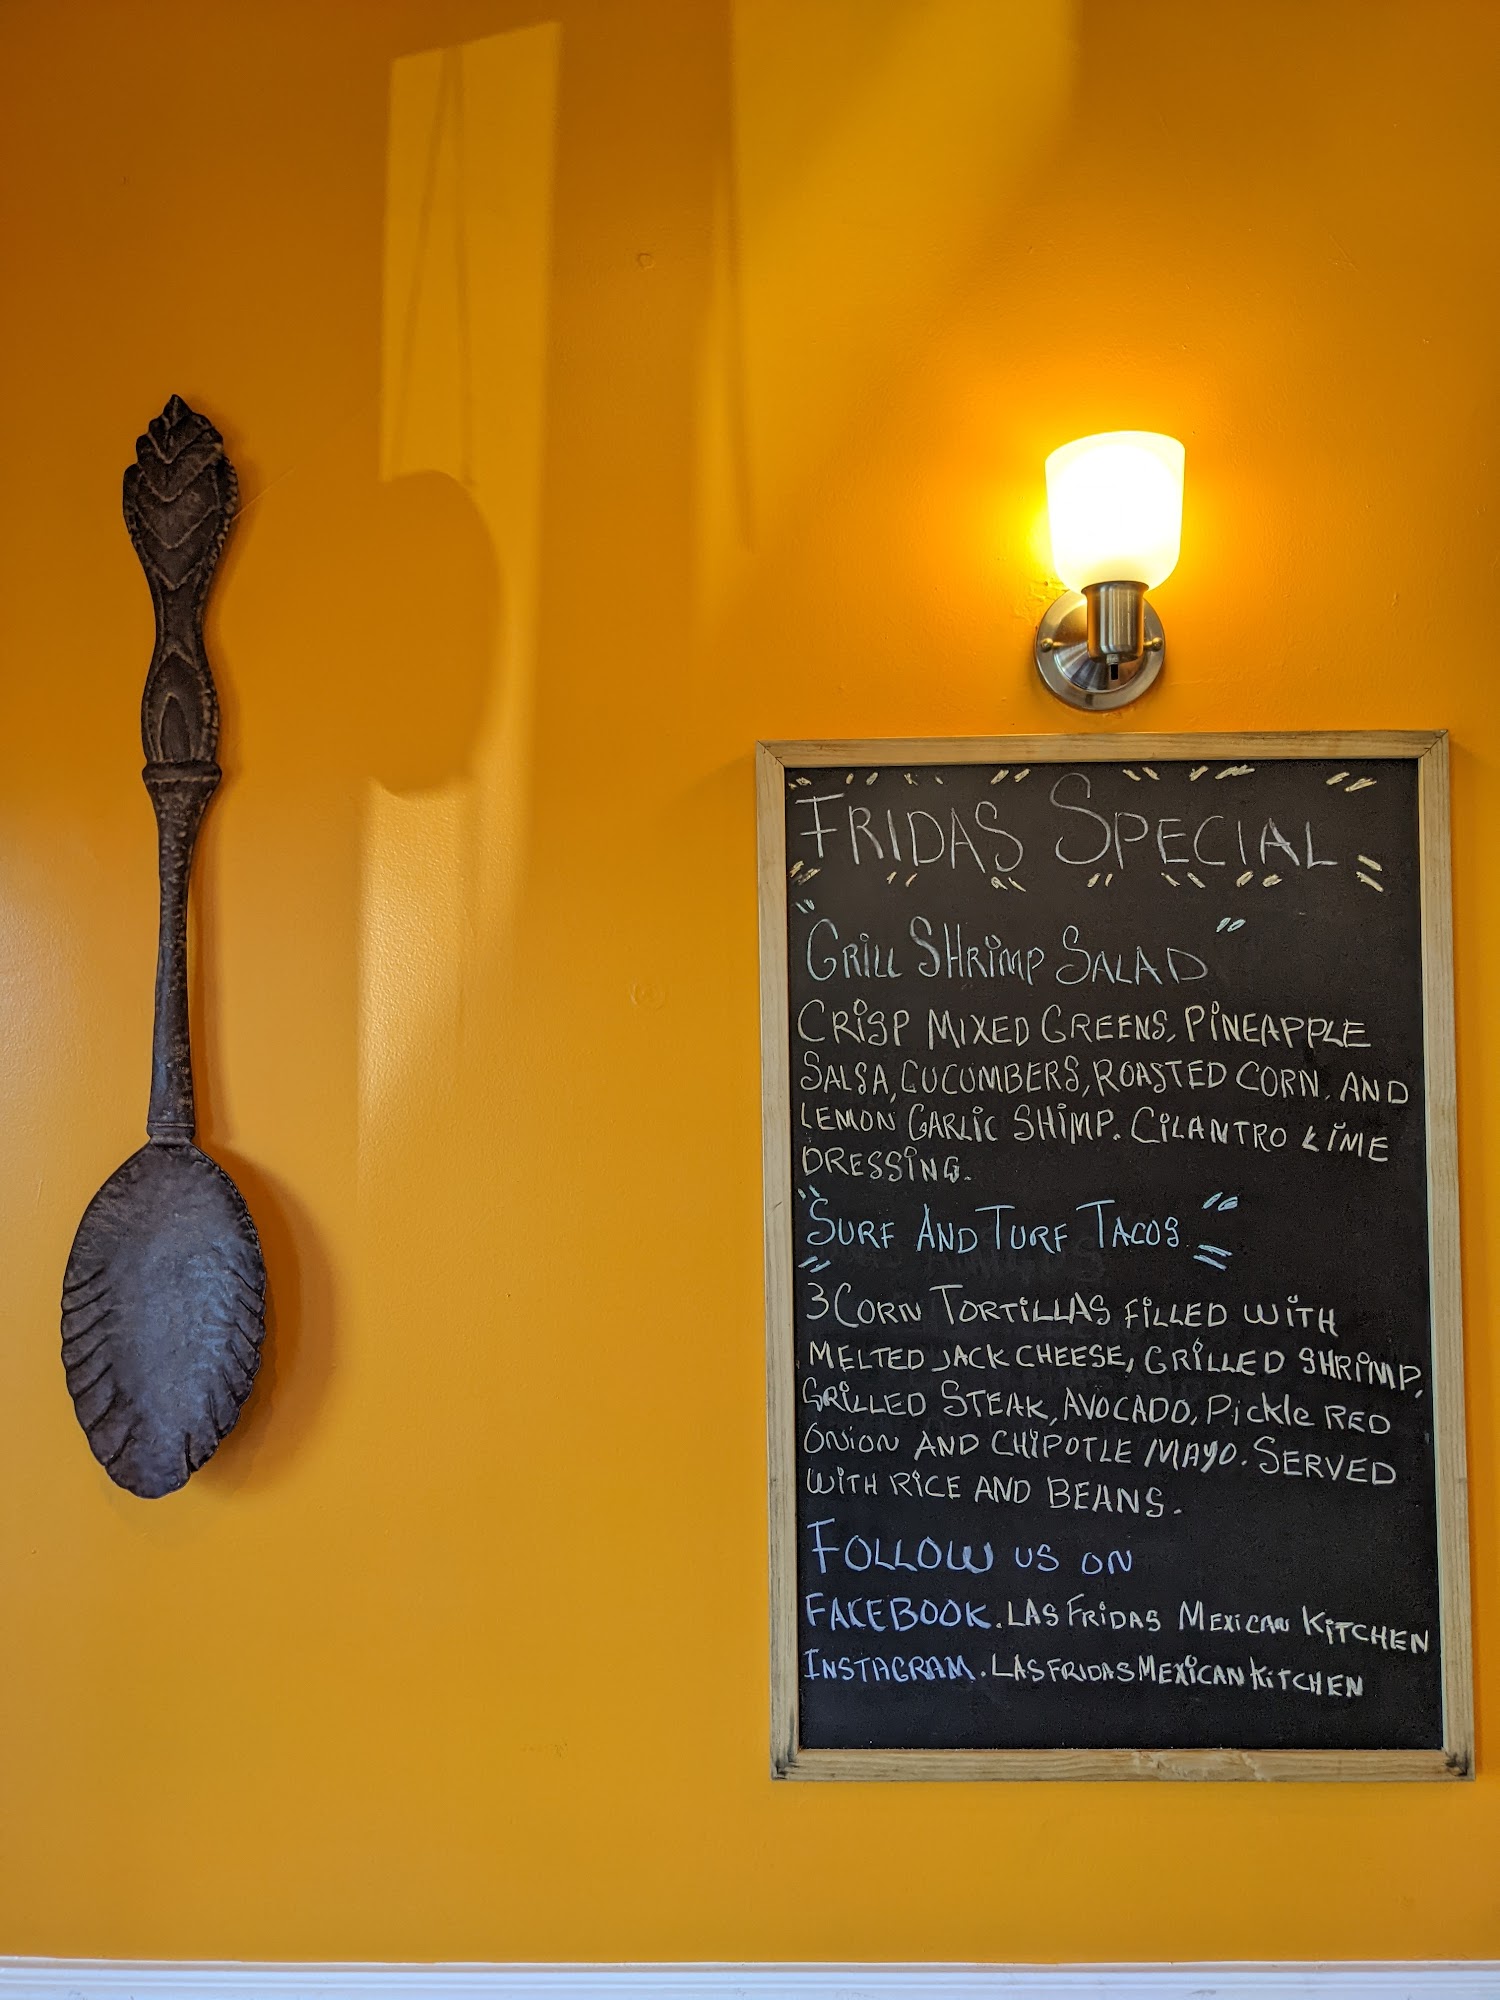 FRIDAS SPECIAL
"GRILL SHRIMP SALAD"
CRISP MIXED GREENS, PINEAPPLE
SALSA, CUCUMBERS, ROASTED CORN, AND
LEMON GARLIC SHIMP. CILANTRO LIME
DRESSING.
"SURF AND TURF TACOS"
3 CORN TORTILLAS FILLED WITH
MELTED JACK CHEESE, GRILLED SHRIMP,
GRILLED STEAK, AVOCADO, PICKLE RED
ONION AND CHIPOTLE MAYO. SERVED
WITH RICE AND BEANS.
FOLLOW US ON
FACEBOOK. LAS FRIDAS MEXICAN KITCHEN
INSTAGRAM. LASFRIDASMEXICANKITCHEN